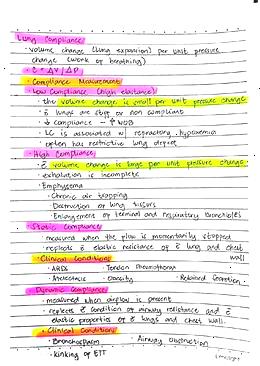 Lung Compliance
· volume change (lung expansion) per unit pressure
change (work of breathing)
· C = ΔV / ΔP
· Compliance Measurement
· Low Compliance (high elastance)
· the volume change is small per unit pressure change
· lungs are stiff or non compliant
· ↓ compliance - ↑ WOB
· LC is associated w/ refractory hypoxemia
· often has restrictive lung
· High Compliance
· volume change is large per unit pressure change
· exhalation is incomplete
· Emphysema
· Chronic air trapping
· Destruction of lung tissues
· Enlargement of terminal and respiratory bronchioles
· Static Compliance
· measured when the flow is momentarily stopped
· reflects elastic resistance of lung and chest
wall
· Clinical Conditions
· ARDS · Tension Pneumothorax
· Atelectasis · Obesity · Retained Secretion
· Dynamic Compliance
· measured when airflow is present
· reflects condition of airway resistance and
elastic properties of lungs and chest wall
· Clinical Conditions
· Bronchospasm · Airway obstruction
· kinking of ETT